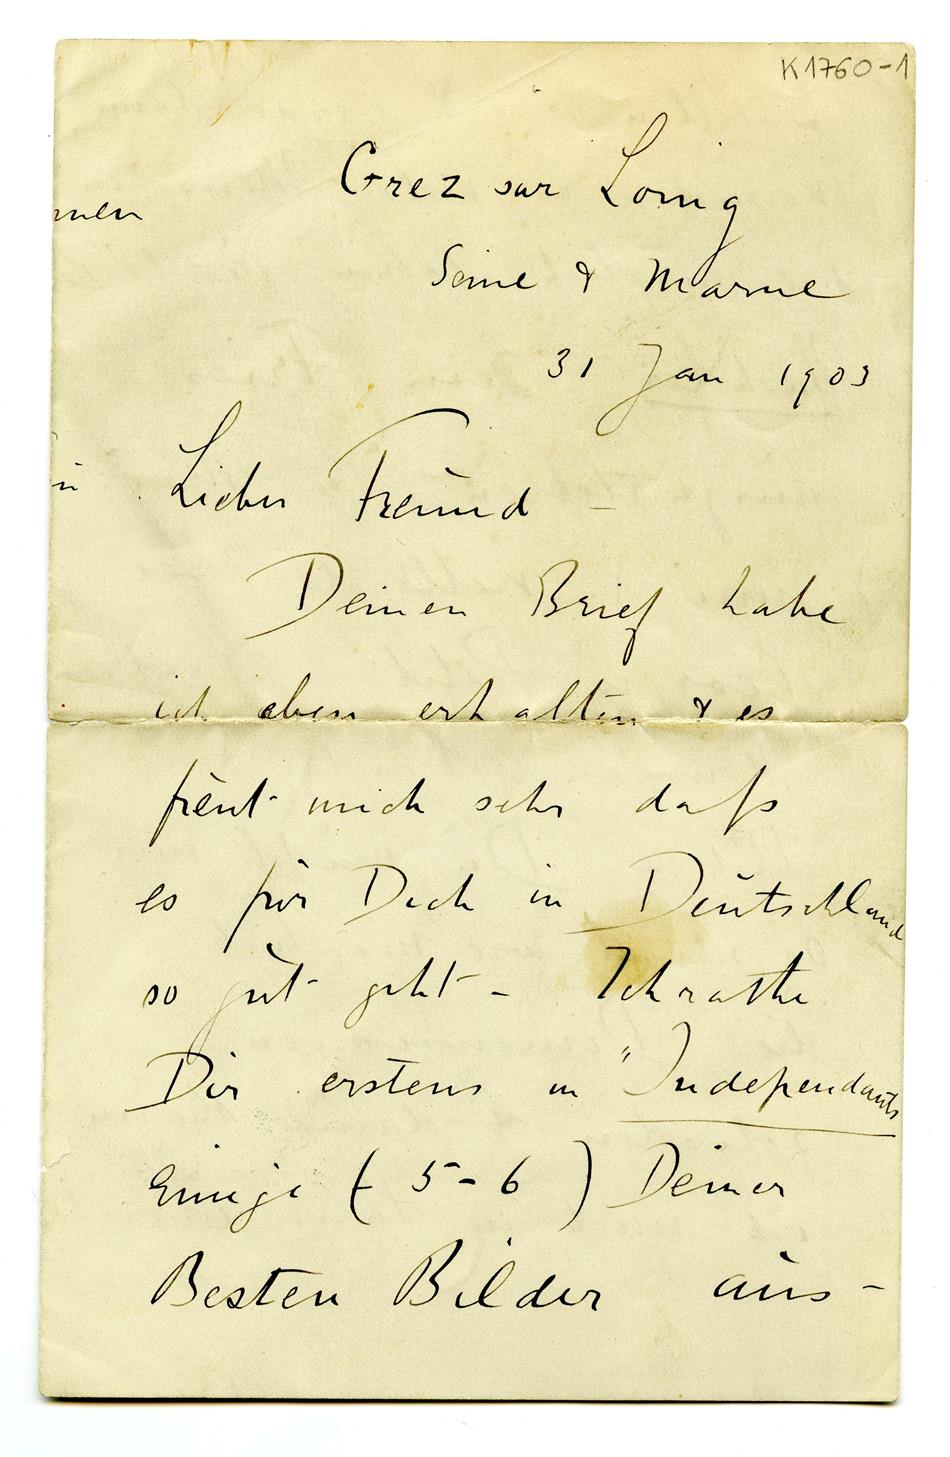 K1760-1
Grez sur Loing
Seine & Marne
31 Jan 1903
Lieber Freund –
Deinen Brief habe
ich eben erhalten & es
freut mich sehr dass
es für Dich in Deutschland
so gut geht – Ich rathe
Dir erstens in "Independants
Einige (5-6) Deiner
Besten Bilder aus-